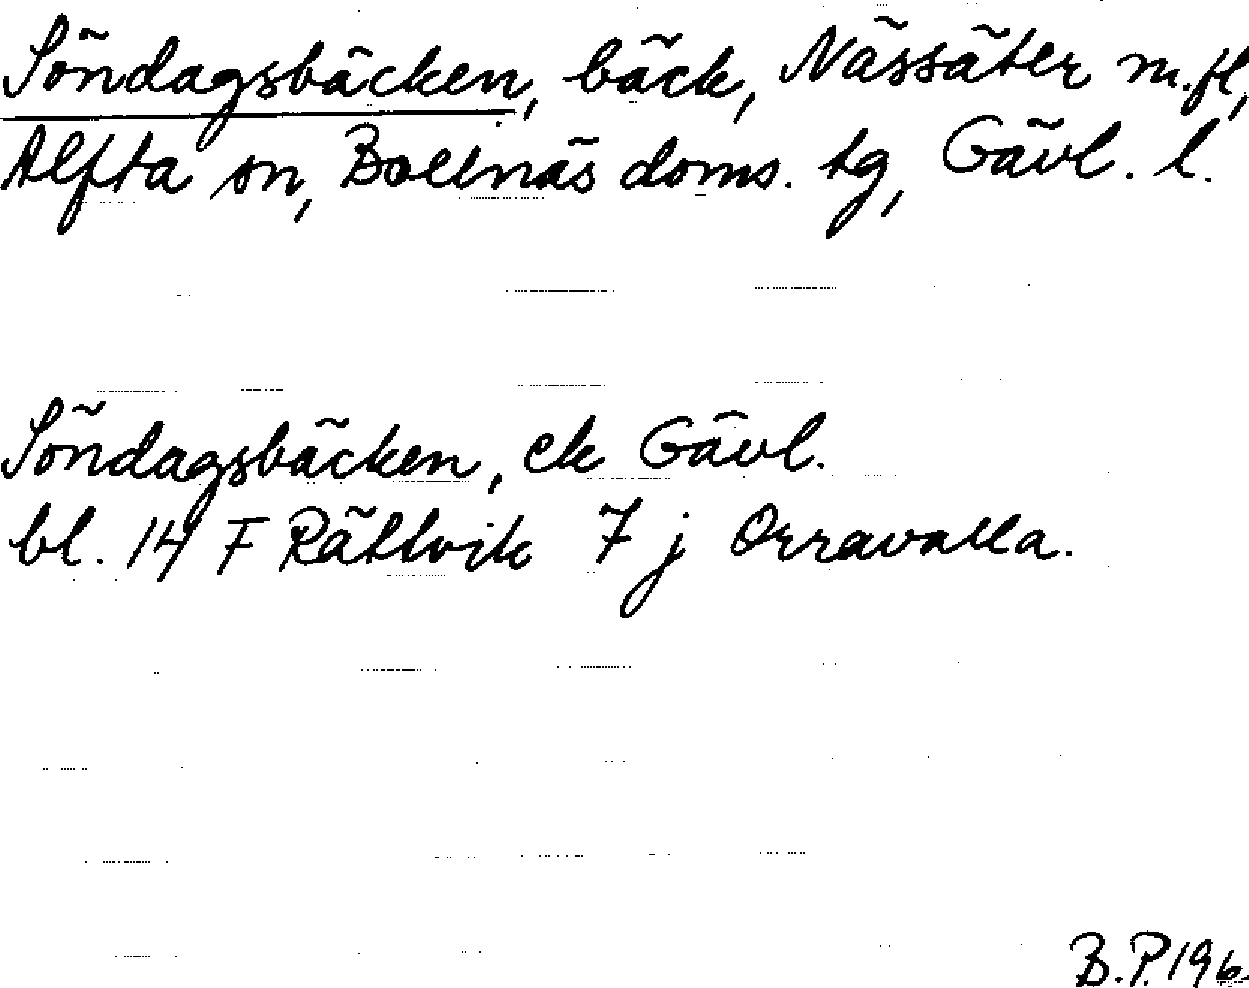 Söndagsbäcken, bäck, Nässäter m.fl,
Alfta sn, Bollnäs doms. tg, Gävl. l.
Söndagsbäcken, ek Gävl.
bl. 14 F Rättvik 7 j Orravalla.
B.P. 196